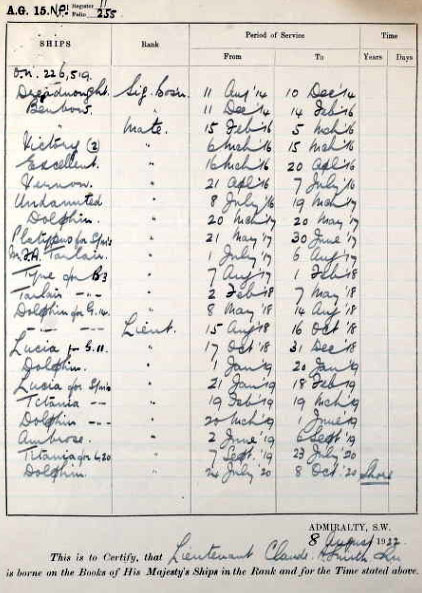 A.G. 15. N.P. Register 11
Folio 255
SHIPS Rank Period of Service Time
From To Years Days
O.N. 226,519.
Dreadnought. Sig. Bosn. 11 Aug '14 10 Dec '14
Benbow. " 11 Dec '14 14 Feb '16
" Mate. 15 Feb '16 5 Mch '16
Victory (2) " 6 Mch '16 15 Mch '16
Excellent. " 16 Mch '16 20 Apl '16
Vernon. " 21 Apl '16 7 July '16
Undaunted " 8 July '16 19 Mch '17
Dolphin. " 20 Mch '17 20 May '17
Platypus for " 21 May '17 30 June '17
" 1 July '17 6 Aug '17
for B3 " 7 Aug '17 1 Feb '18
" 2 Feb '18 7 May '18
Dolphin for G. " 8 May '18 14 Aug '18
-- -- Lieut. 15 Aug '18 16 Oct '18
Lucia for G.11. " 17 Oct '18 31 Dec '18
Dolphin. " 1 Jan '19 20 Jan '19
Lucia for " 21 Jan '19 18 Feb '19
Titania -- " 19 Feb '19 19 Mch '19
Dolphin -- " 20 Mch '19 1 June '19
Ambrose. " 2 June '19 6 Sept '19
Titania for L20 " 7 Sept. '19 23 July '20
Dolphin. " 24 July '20 8 Oct '20 Shore
ADMIRALTY, S.W.
8 August 1922
This is to Certify, that Lieutenant Claude
is borne on the Books of His Majesty's Ships in the Rank and for the Time stated above.